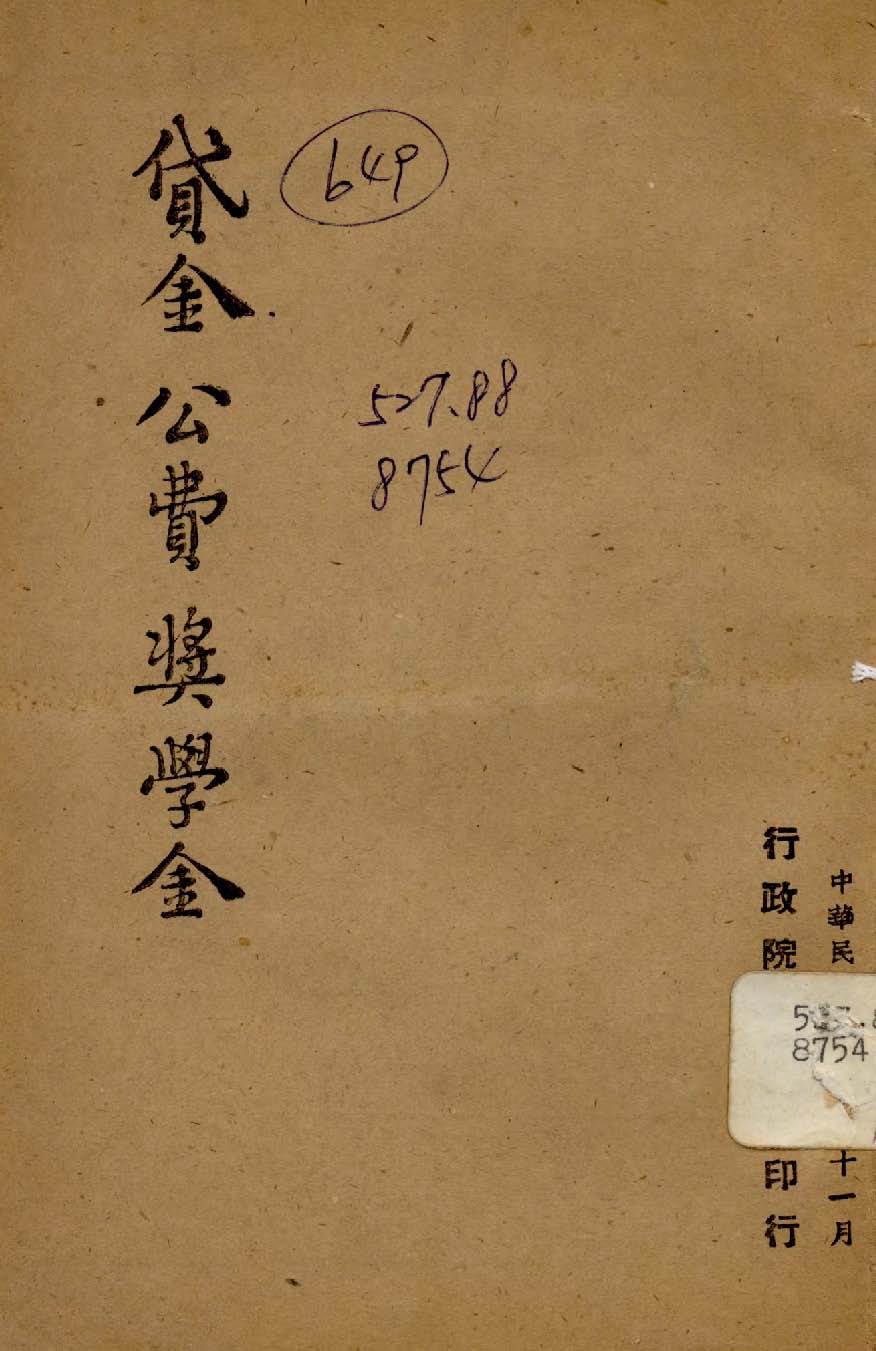 貸金 公費 奨學金
649
527.88
8754
中華民
十一月
行政院
印行
8754